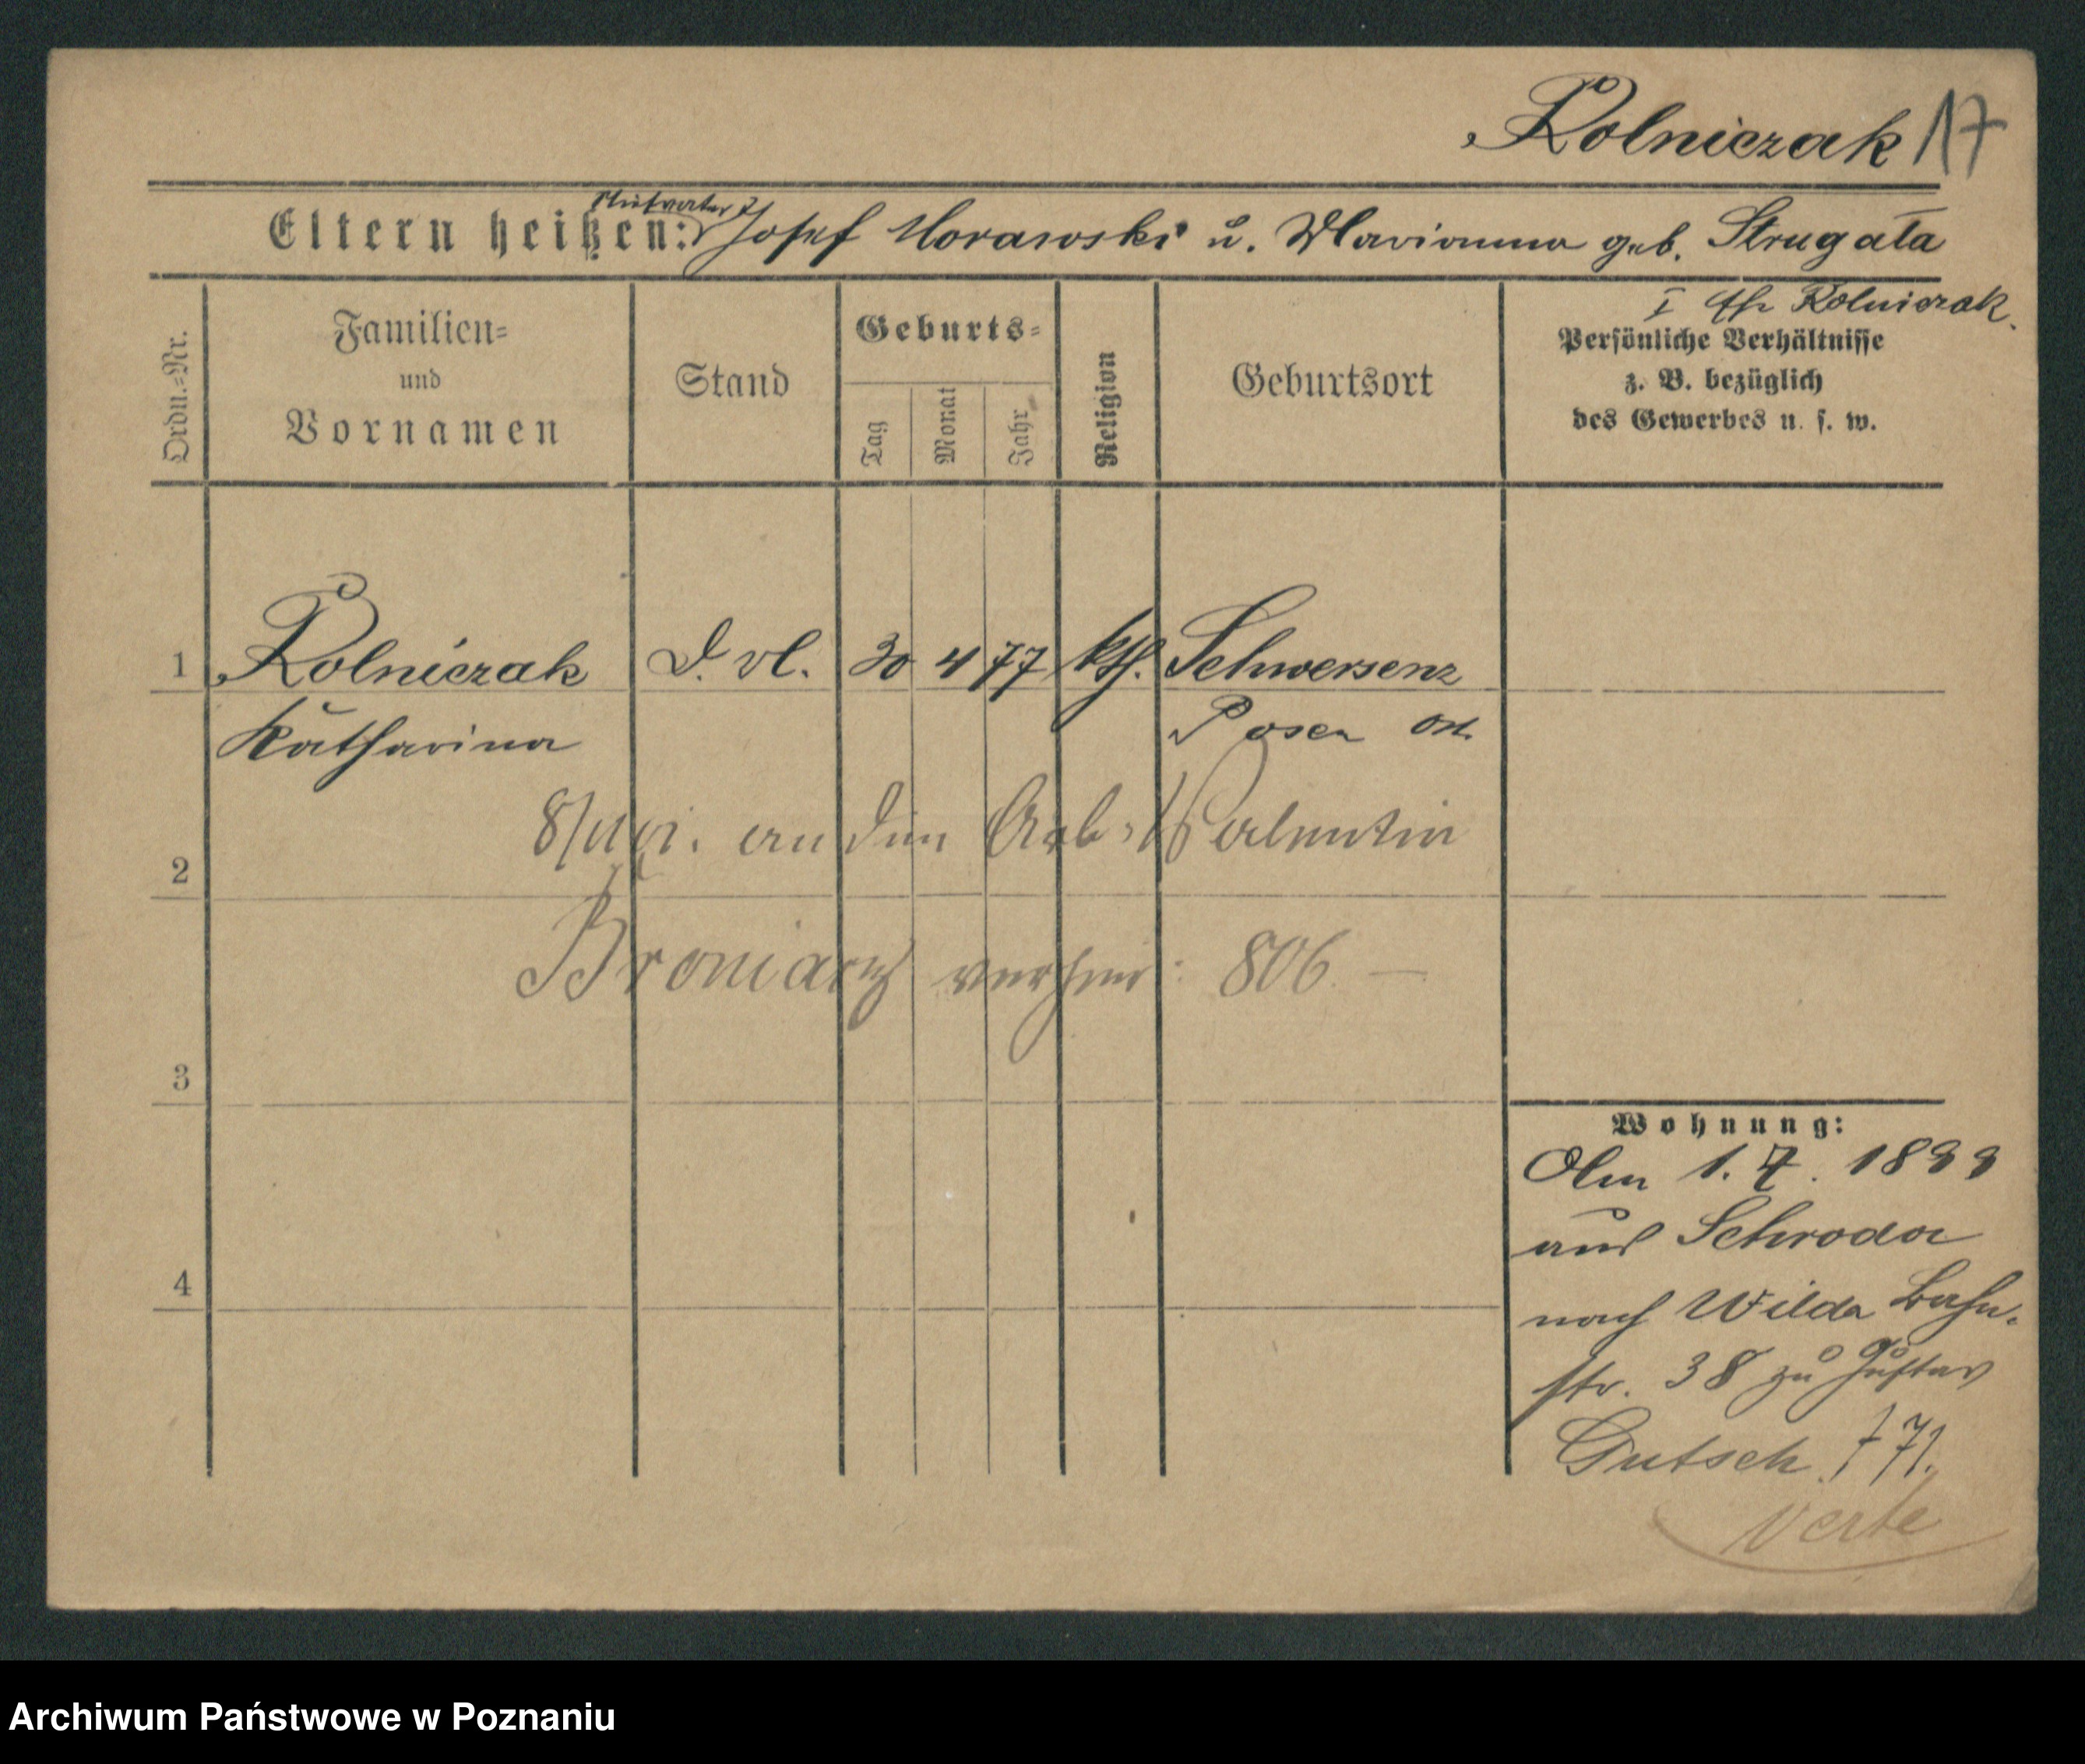 Rolniczak 17
Eltern heißen: Stiefvater Josef Morawski u. Marianna geb. Strugała
I Rolniczak.
Ordn.-Nr.
Familien- und Vornamen
Stand
Geburts-
Tag
Monat
Jahr
Religion
Geburtsort
Persönliche Verhältnisse
z. B. bezüglich
des Gewerbes u. s. w.
1 Rolniczak D. vl. 30 4 77 kth. Schwersenz
Katharina Posen Ost.
an den Arb. Valentin
2
Broniarz verheir: 806. —
3
4
Wohnung:
Am 1. 7. 1899
aus Schroda
nach Wilda Bahn-
str. 38 zu Gustav
Gutsch 771.
verte
Archiwum Państwowe w Poznaniu